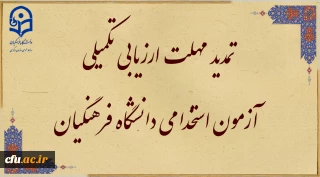 تمدید مهلت ارزیابی تکمیلی
آزمون استخدامی دانشگاه فرهنگیان
cfu.ac.ir